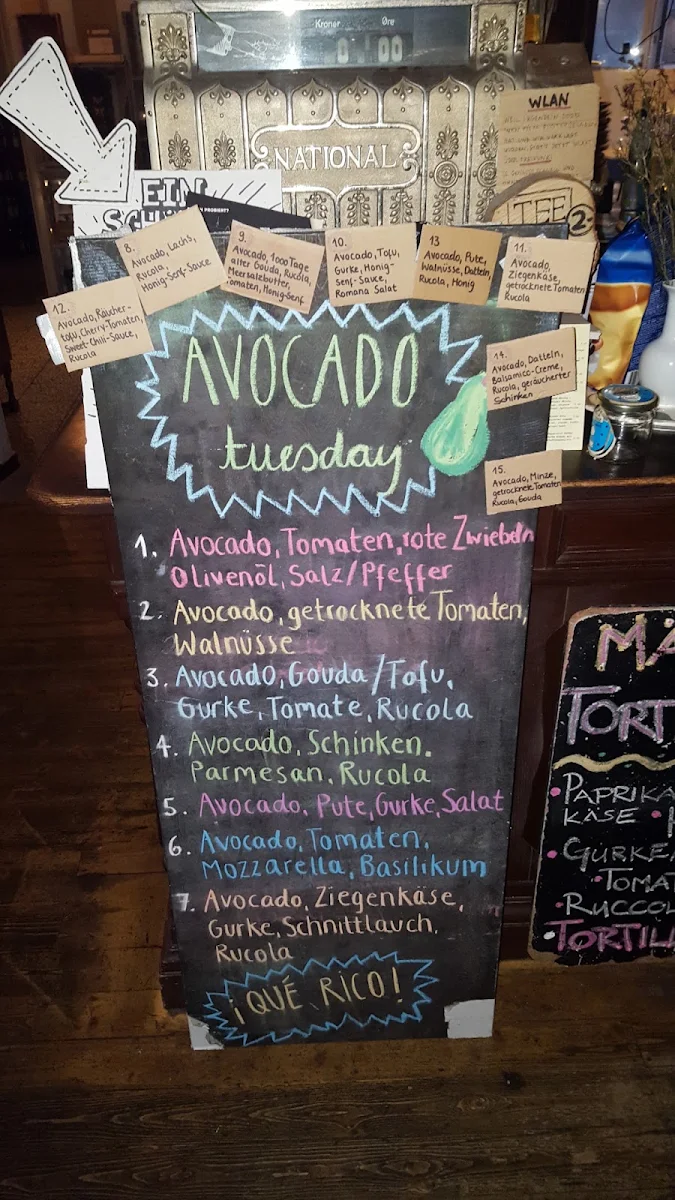 Kroner Øre
0 00
NATIONAL
WLAN
EIN
TEE 2-
8.
Avocado, Lachs,
Rucola,
Honig-Senf-Sauce
9.
Avocado, 1000 Tage
alter Gouda, Rucola,
Meersalzbutter,
Tomaten, Honig-Senf
10.
Avocado, Tofu,
Gurke, Honig-
Senf-Sauce,
Romana Salat
13
Avocado, Pute,
Walnüsse, Datteln,
Rucola, Honig
11.
Avocado,
Ziegenkäse,
getrocknete Tomaten
Rucola
12.
Avocado, Räucher-
tofu, Cherry-Tomaten,
Sweet-Chili-Sauce,
Rucola
14.
Avocado, Datteln,
Balsamico-Creme,
Rucola, geräucherter
Schinken
15.
Avocado, Minze,
getrocknete Tomaten
Rucola, Gouda
AVOCADO
tuesday
1. Avocado, Tomaten, rote Zwiebeln
Olivenöl, Salz/Pfeffer
2. Avocado, getrocknete Tomaten,
Walnüsse
3. Avocado, Gouda/Tofu,
Gurke, Tomate, Rucola
4. Avocado, Schinken,
Parmesan, Rucola
5. Avocado, Pute, Gurke, Salat
6. Avocado, Tomaten,
Mozzarella, Basilikum
7. Avocado, Ziegenkäse,
Gurke, Schnittlauch,
Rucola
¡QUÉ RICO!
MÄ
TORT
• PAPRIKA
KÄSE •
• GURKE
• TOMAT
• RUCCOL
• TORTILL